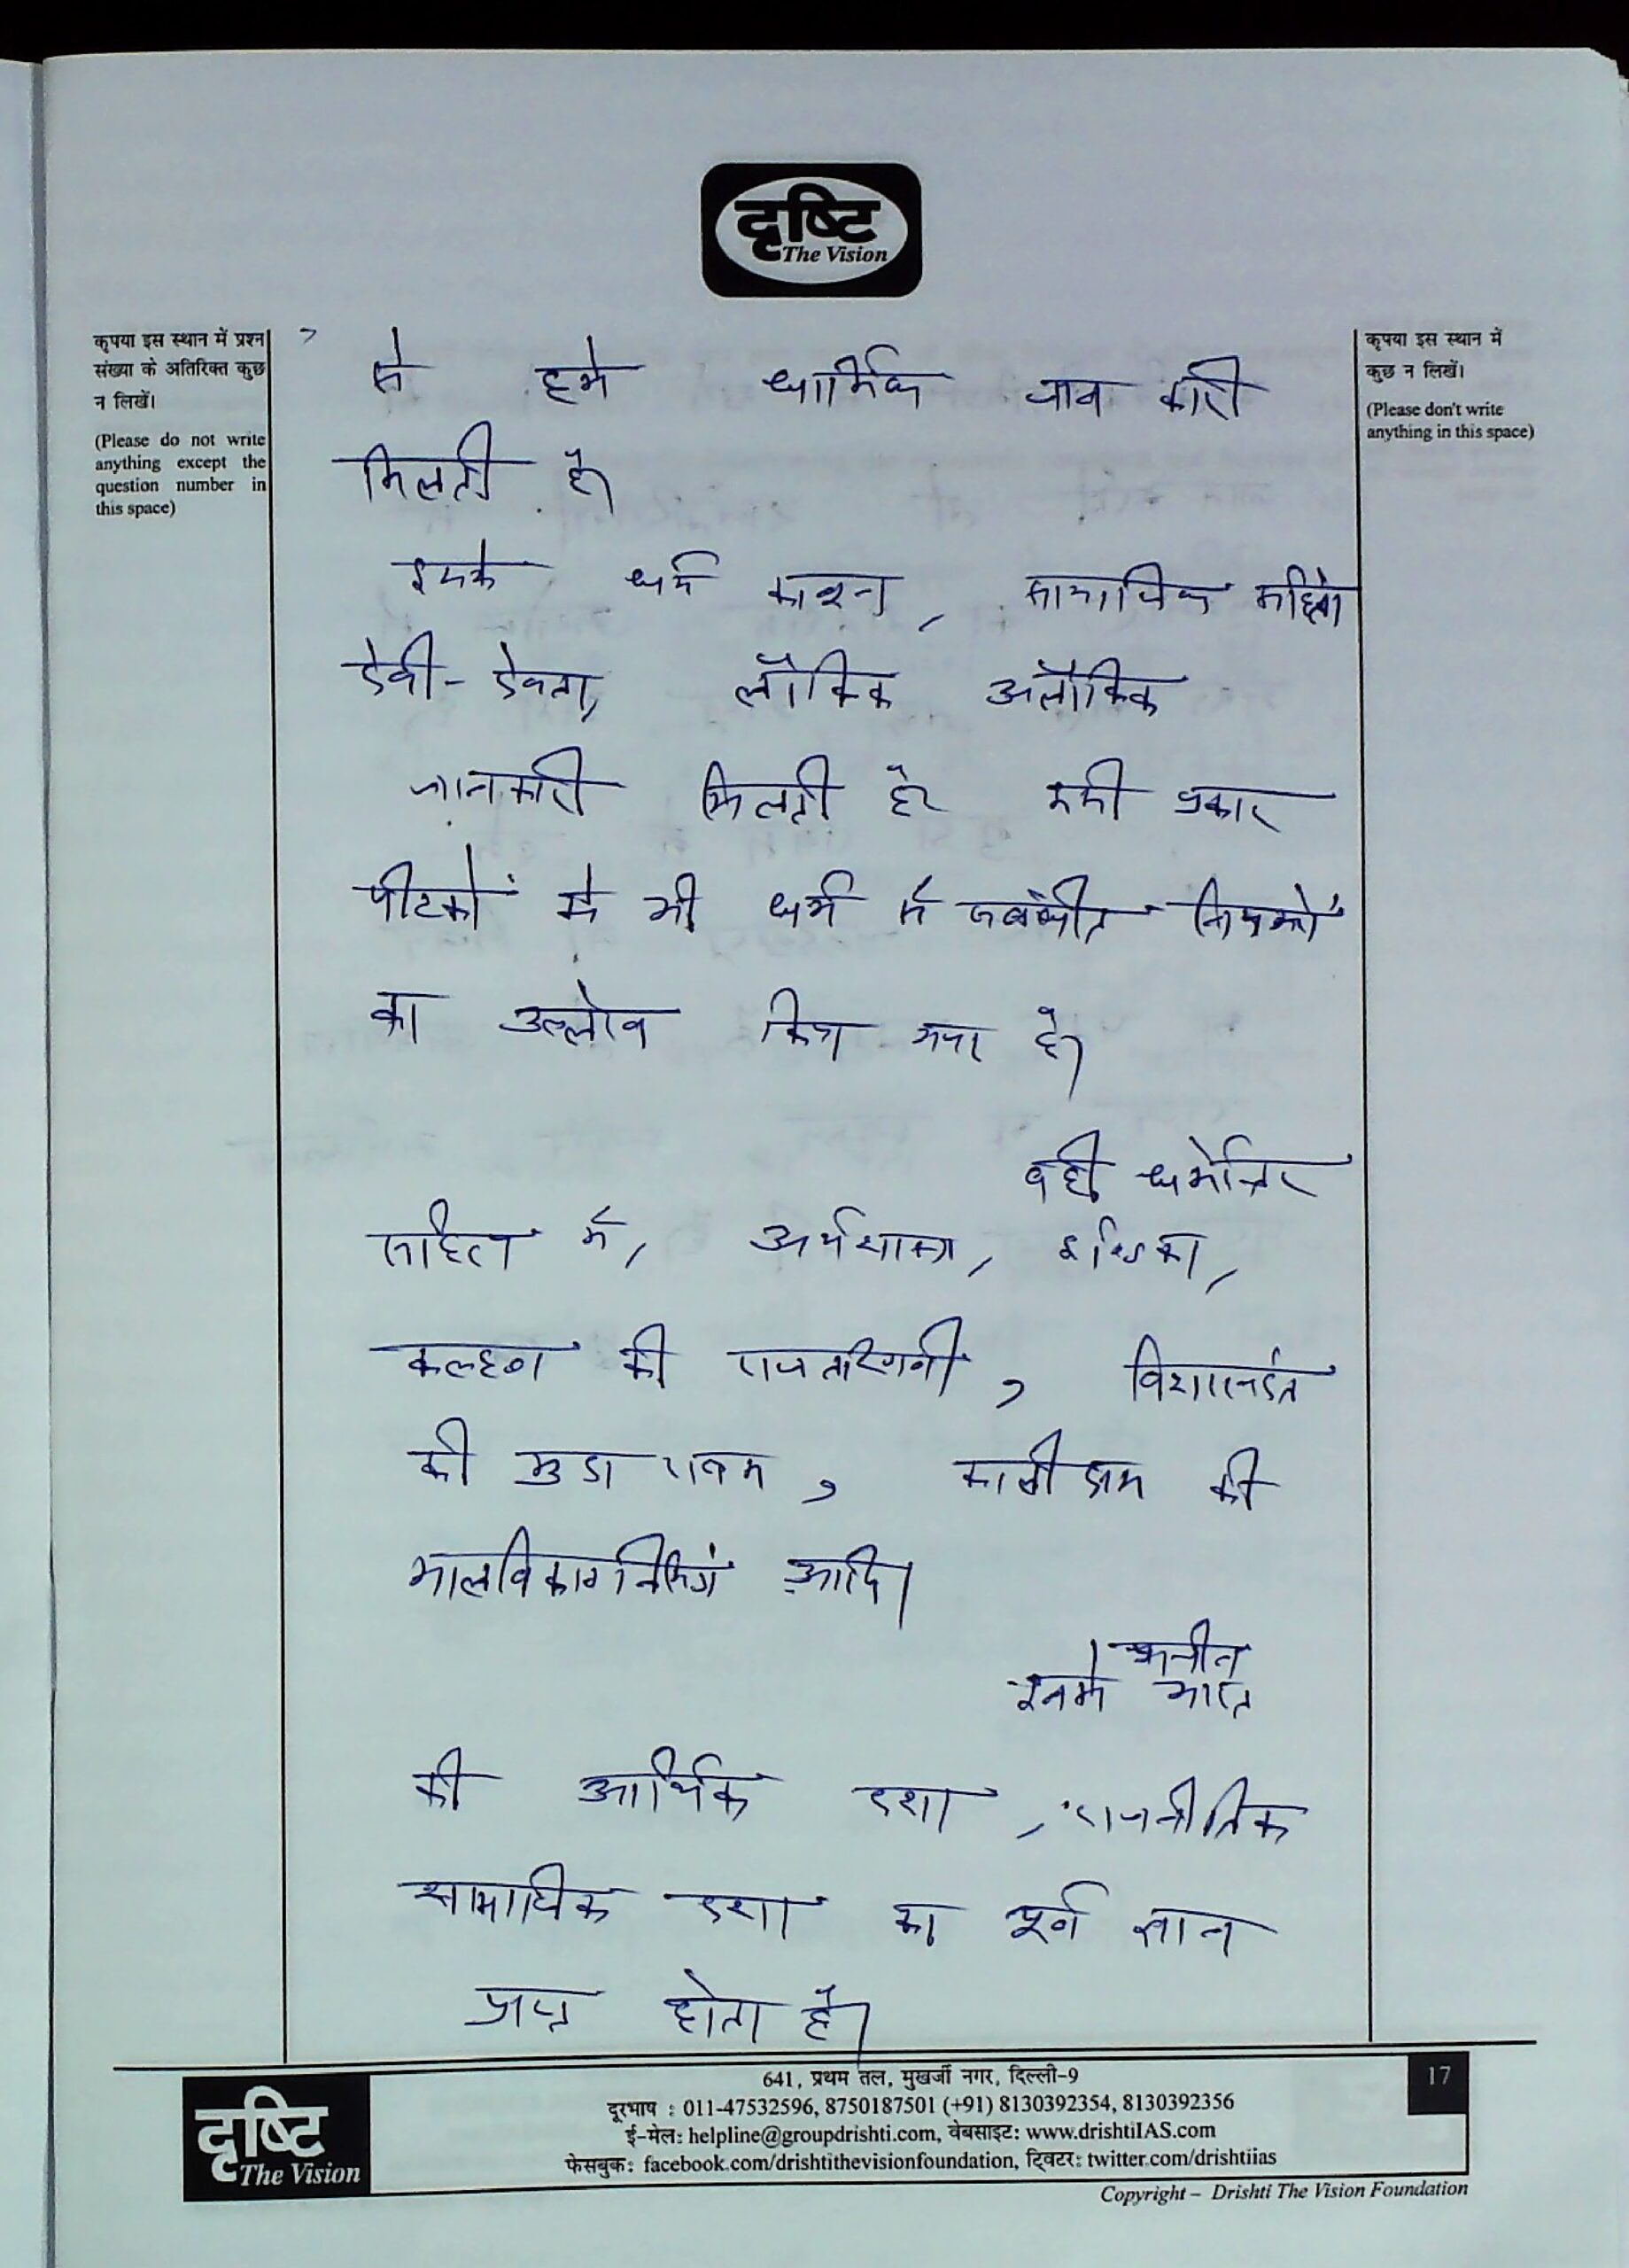 दृष्टि
The Vision
कृपया इस स्थान में प्रश्न
संख्या के अतिरिक्त कुछ
न लिखें।
(Please do not write
anything except the
question number in
this space)
कृपया इस स्थान में
कुछ न लिखें।
(Please don't write
anything in this space)
से हमे धार्मिक जानकारी
मिलती है।
इसके धर्म सामाजिक
देवी-देवता, लौकिक अलौकिक
जानकारी मिलती है इसी प्रकार
पीटकों मे भी धर्म से संबंधीत नियमों
का उल्लेख किया गया है।
वही धर्मेत्तर
साहित्य में, अर्थशास्त्र, इण्डिका,
कल्हण की राजतरंगिनी, विशाखदत्त
की मुद्रा राक्षस, कालीदास की
मालविकाग्निमित्रं आदि।
इनमे प्राचीन
भारत
की आर्थिक दशा, राजनीतिक
सामाजिक दशा का पूर्ण ज्ञान
प्राप्त होता है।
641, प्रथम तल, मुखर्जी नगर, दिल्ली-9
17
दूरभाष : 011-47532596, 8750187501 (+91) 8130392354, 8130392356
ई-मेल: helpline@groupdrishti.com, वेबसाइट: www.drishtiIAS.com
फेसबुक: facebook.com/drishtithevisionfoundation, ट्विटर: twitter.com/drishtiias
दृष्टि
The Vision
Copyright – Drishti The Vision Foundation